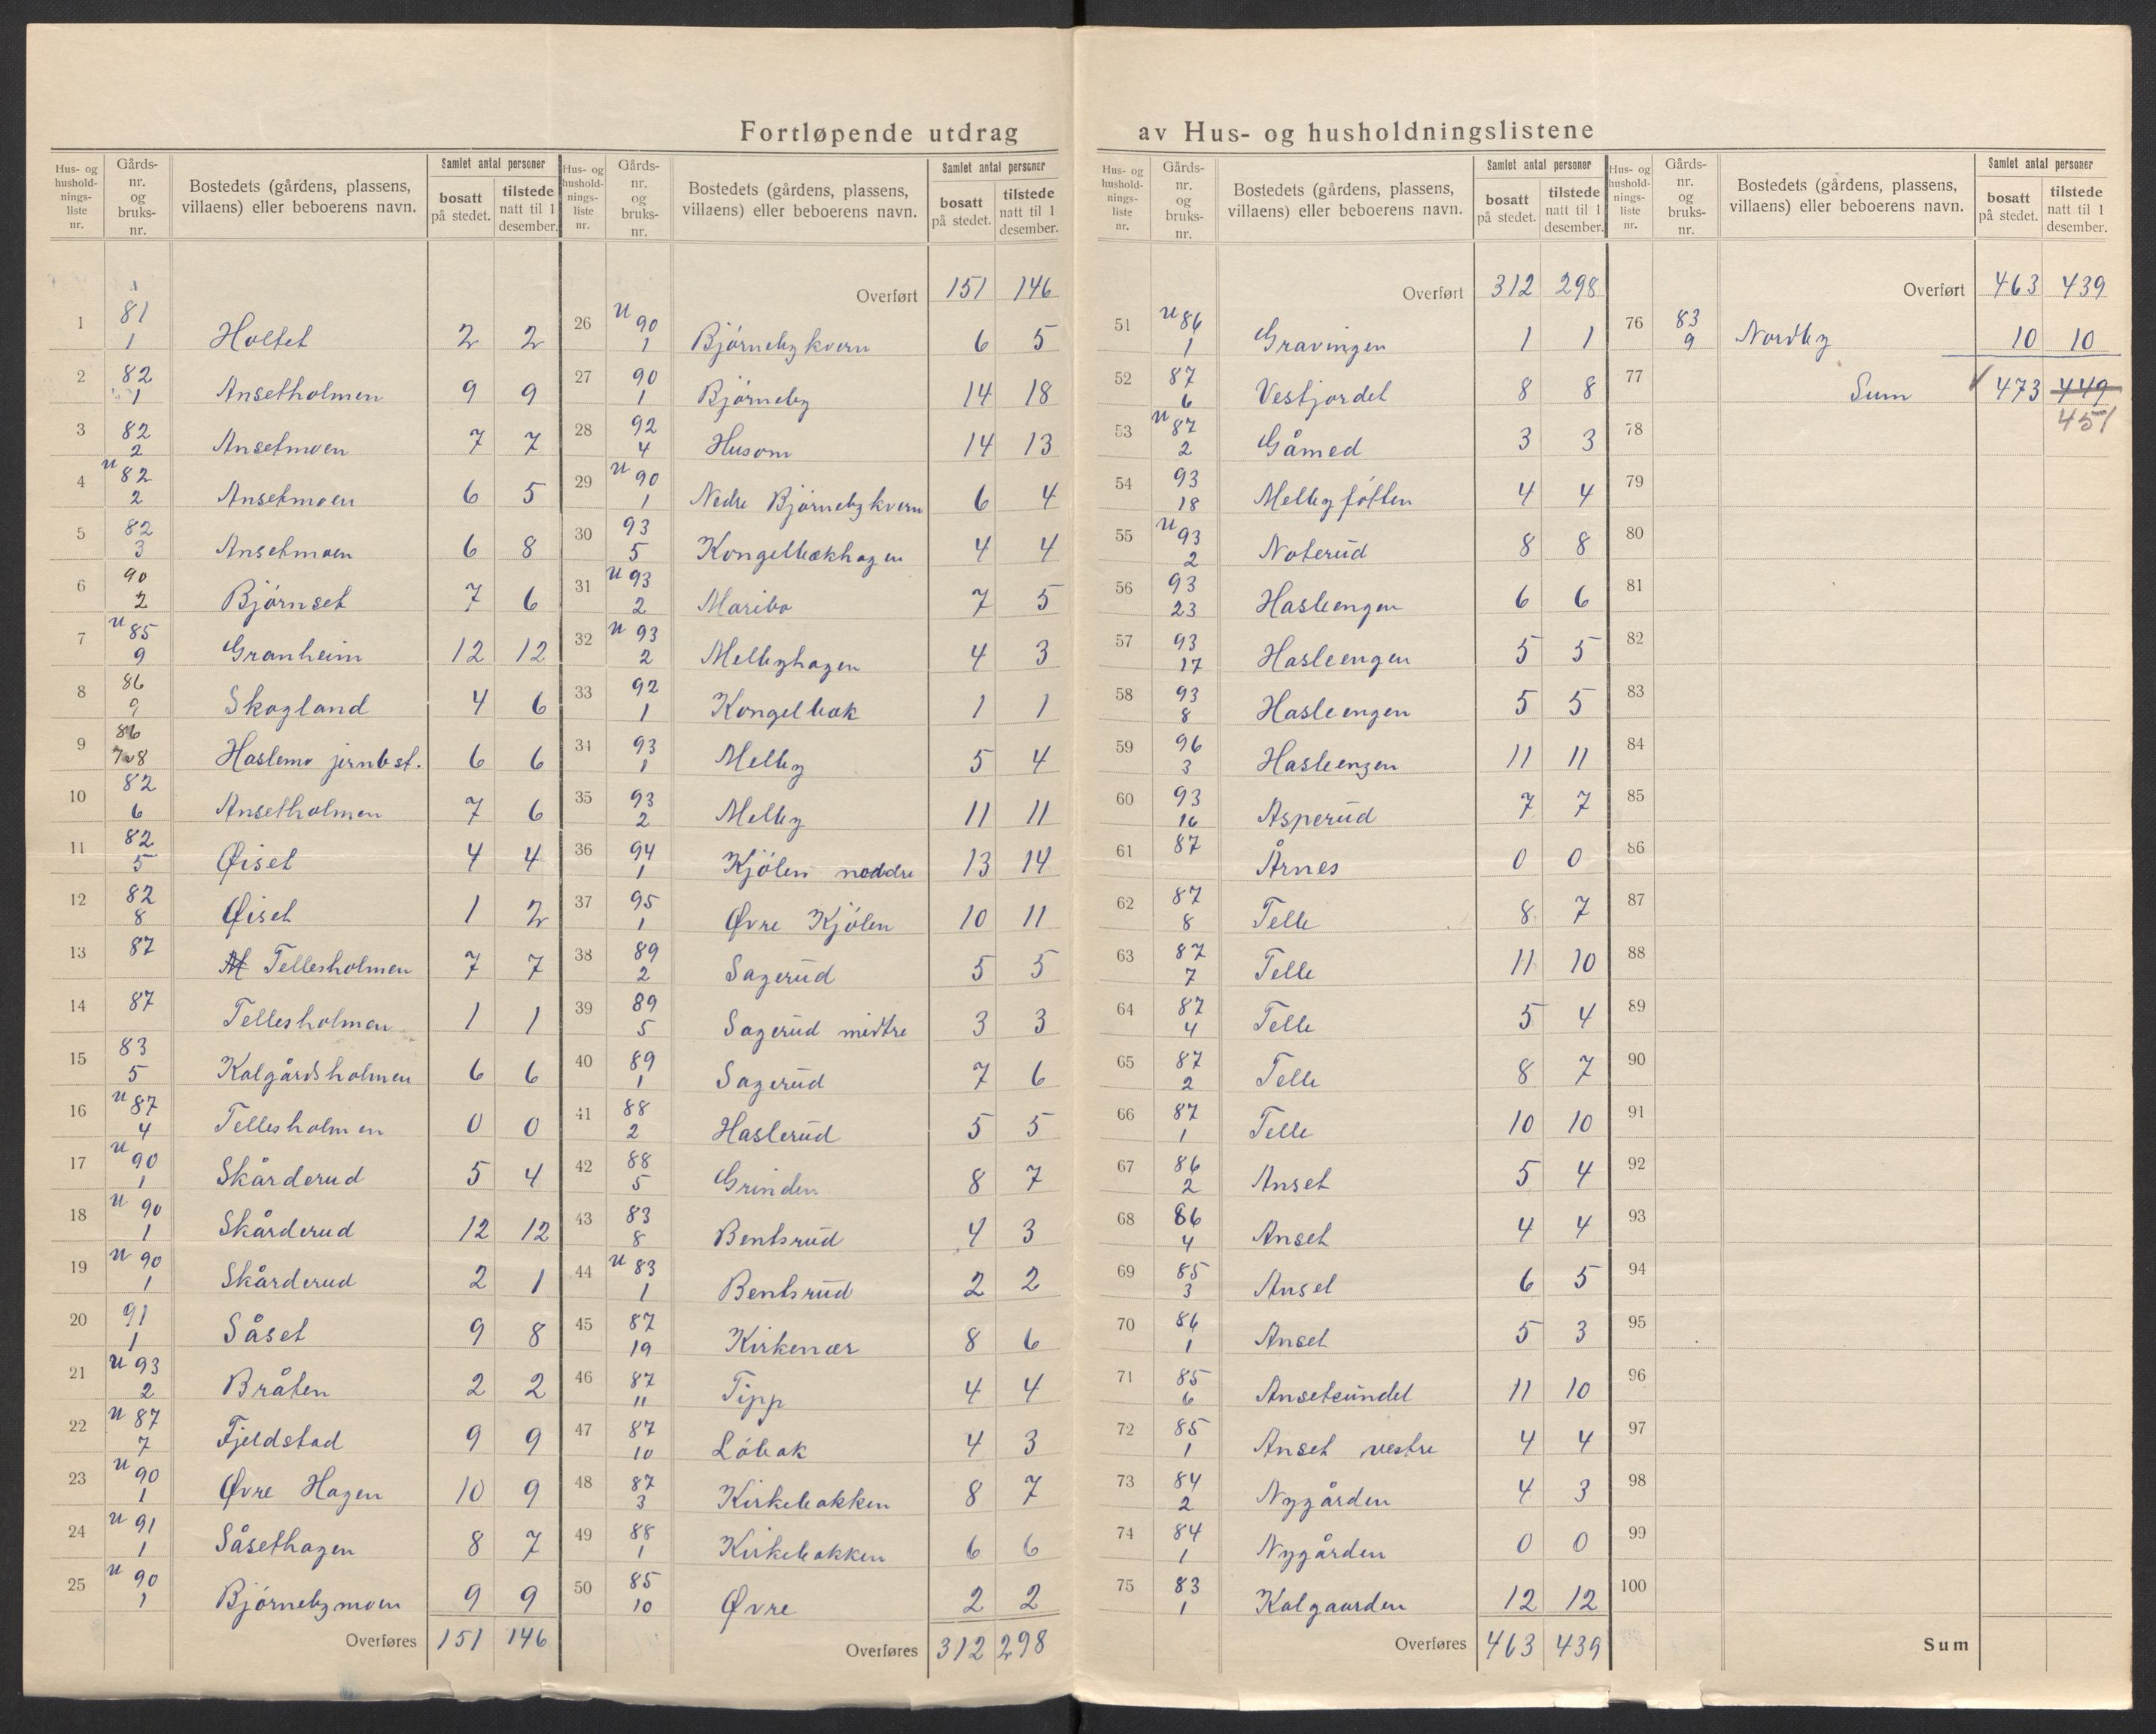 Fortløpende utdrag av Hus- og husholdningslistene
Hus- og hushold-nings-liste nr. Gårds-nr. og bruks-nr. Bostedets (gårdens, plassens, villaens) eller beboerens navn. Samlet antal personer bosatt på stedet. tilstede natt til 1 desember.
1 81 1 Holtet 2 2
2 82 1 Ansetholmen 9 9
3 82 2 Ansetmoen 7 7
4 u 82 2 Ansetmoen 6 5
5 82 3 Ansetmoen 6 8
6 90 2 Bjørnset 7 6
7 u 85 9 Granheim 12 12
8 86 9 Skogland 4 6
9 86 7 8 Haslemo jernbst. 6 6
10 82 6 Ansetholmen 7 6
11 82 5 Øiset 4 4
12 82 8 Øiset 1 2
13 87 Tellesholmen 7 7
14 87 Tellesholmen 1 1
15 83 5 Kalgårdsholmen 6 6
16 u 87 4 Tellesholmen 0 0
17 u 90 1 Skårderud 5 4
18 u 90 1 Skårderud 12 12
19 u 90 1 Skårderud 2 1
20 91 1 Såset 9 8
21 u 93 2 Bråten 2 2
22 u 87 7 Fjeldstad 9 9
23 u 90 1 Øvre Hagen 10 9
24 u 91 1 Såsethagen 8 7
25 u 90 1 Bjørnebymoen 9 9
Overføres 151 146
Hus- og hushold-nings-liste nr. Gårds-nr. og bruks-nr. Bostedets (gårdens, plassens, villaens) eller beboerens navn. Samlet antal personer bosatt på stedet. tilstede natt til 1 desember.
Overført 151 146
26 u 90 1 Bjørnebykvern 6 5
27 90 1 Bjørneby 14 18
28 92 4 Husom 14 13
29 u 90 1 Nedre Bjørnebykvern 6 4
30 93 5 Kongelbækhagen 4 4
31 u 93 2 Maribo 7 5
32 u 93 2 Melbyhagen 4 3
33 92 1 Kongelbæk 1 1
34 93 1 Melby 5 4
35 93 2 Melby 11 11
36 94 1 Kjølen nedre 13 14
37 95 1 Øvre Kjølen 10 11
38 89 2 Sagerud 5 5
39 89 5 Sagerud midtre 3 3
40 89 1 Sagerud 7 6
41 88 2 Haslerud 5 5
42 88 5 Grinden 8 7
43 83 8 Bentsrud 4 3
44 u 83 1 Bentsrud 2 2
45 87 19 Kirkenær 8 6
46 87 11 Tipp 4 4
47 87 10 Løbak 4 3
48 87 3 Kirkebakken 8 7
49 88 1 Kirkebakken 6 6
50 85 10 Øvre 2 2
Overføres 312 298
Hus- og hushold-nings-liste nr. Gårds-nr. og bruks-nr. Bostedets (gårdens, plassens, villaens) eller beboerens navn. Samlet antal personer bosatt på stedet. tilstede natt til 1 desember.
Overført 312 298
51 u 86 1 Gravingen 1 1
52 87 6 Vestjordet 8 8
53 u 87 2 Gåmed 3 3
54 93 18 Melbyføtten 4 4
55 u 93 2 Noterud 8 8
56 93 23 Hasleengen 6 6
57 93 17 Hasleengen 5 5
58 93 8 Hasleengen 5 5
59 96 3 Hasleengen 11 11
60 93 16 Asperud 7 7
61 87 Årnes 0 0
62 87 8 Telle 8 7
63 87 7 Telle 11 10
64 87 4 Telle 5 4
65 87 2 Telle 8 7
66 87 1 Telle 10 10
67 86 2 Anset 5 4
68 86 4 Anset 4 4
69 85 3 Anset 6 5
70 86 1 Anset 5 3
71 85 6 Ansetsundet 11 10
72 85 1 Anset vestre 4 4
73 84 2 Nygården 4 3
74 84 1 Nygården 0 0
75 83 1 Kalgaarden 12 12
Overføres 463 439
Hus- og hushold-nings-liste nr. Gårds-nr. og bruks-nr. Bostedets (gårdens, plassens, villaens) eller beboerens navn. Samlet antal personer bosatt på stedet. tilstede natt til 1 desember.
Overført 463 439
76 83 9 Nordby 10 10
77 Sum 473 449
451
78
79
80
81
82
83
84
85
86
87
88
89
90
91
92
93
94
95
96
97
98
99
100
Sum